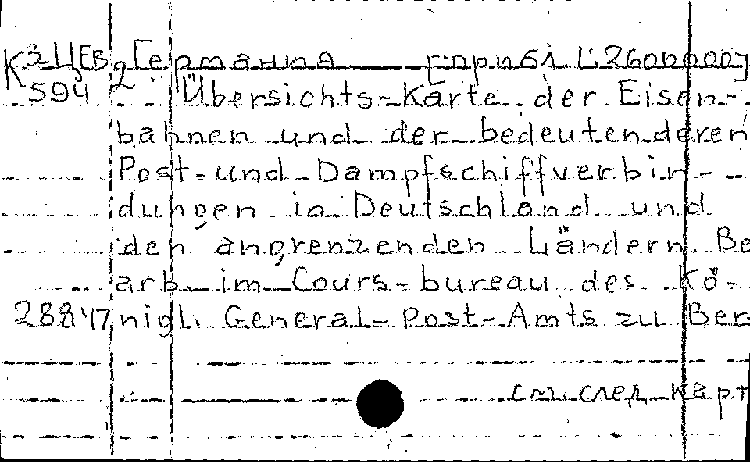 К 3-ЦЕВ 2 Германия [прибл 1:2600000]
594 Übersichts-Karte der Eisen-
bahnen und der bedeutenderen
Post-und-Dampfschiffverbin-
dungen in Deutschland und
den angrenzenden Ländern Be
arb im Cours-bureau des Kö-
288'17 nigl. General-Post-Amts zu Ber
см. след карт